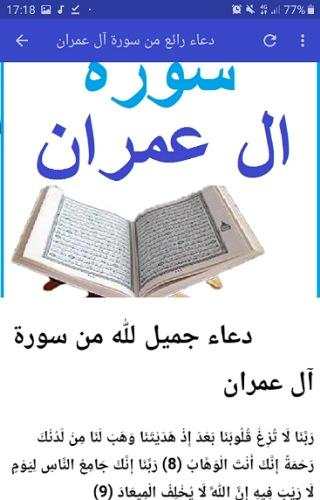 17:18
77%
دعاء رائع من سورة آل عمران
سورة
ال عمران
دعاء جميل لله من سورة
آل عمران
رَبَّنَا لَا تُزِغْ قُلُوبَنَا بَعْدَ إِذْ هَدَيْتَنَا وَهَبْ لَنَا مِنْ لَدُنْكَ
رَحْمَةً إِنَّكَ أَنْتَ الْوَهَّابُ (8) رَبَّنَا إِنَّكَ جَامِعُ النَّاسِ لِيَوْمٍ
لَا رَيْبَ فِيهِ إِنَّ اللَّهَ لَا يُخْلِفُ الْمِيعَادَ (9)